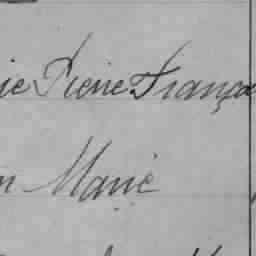 ie Pierre François
n Marie